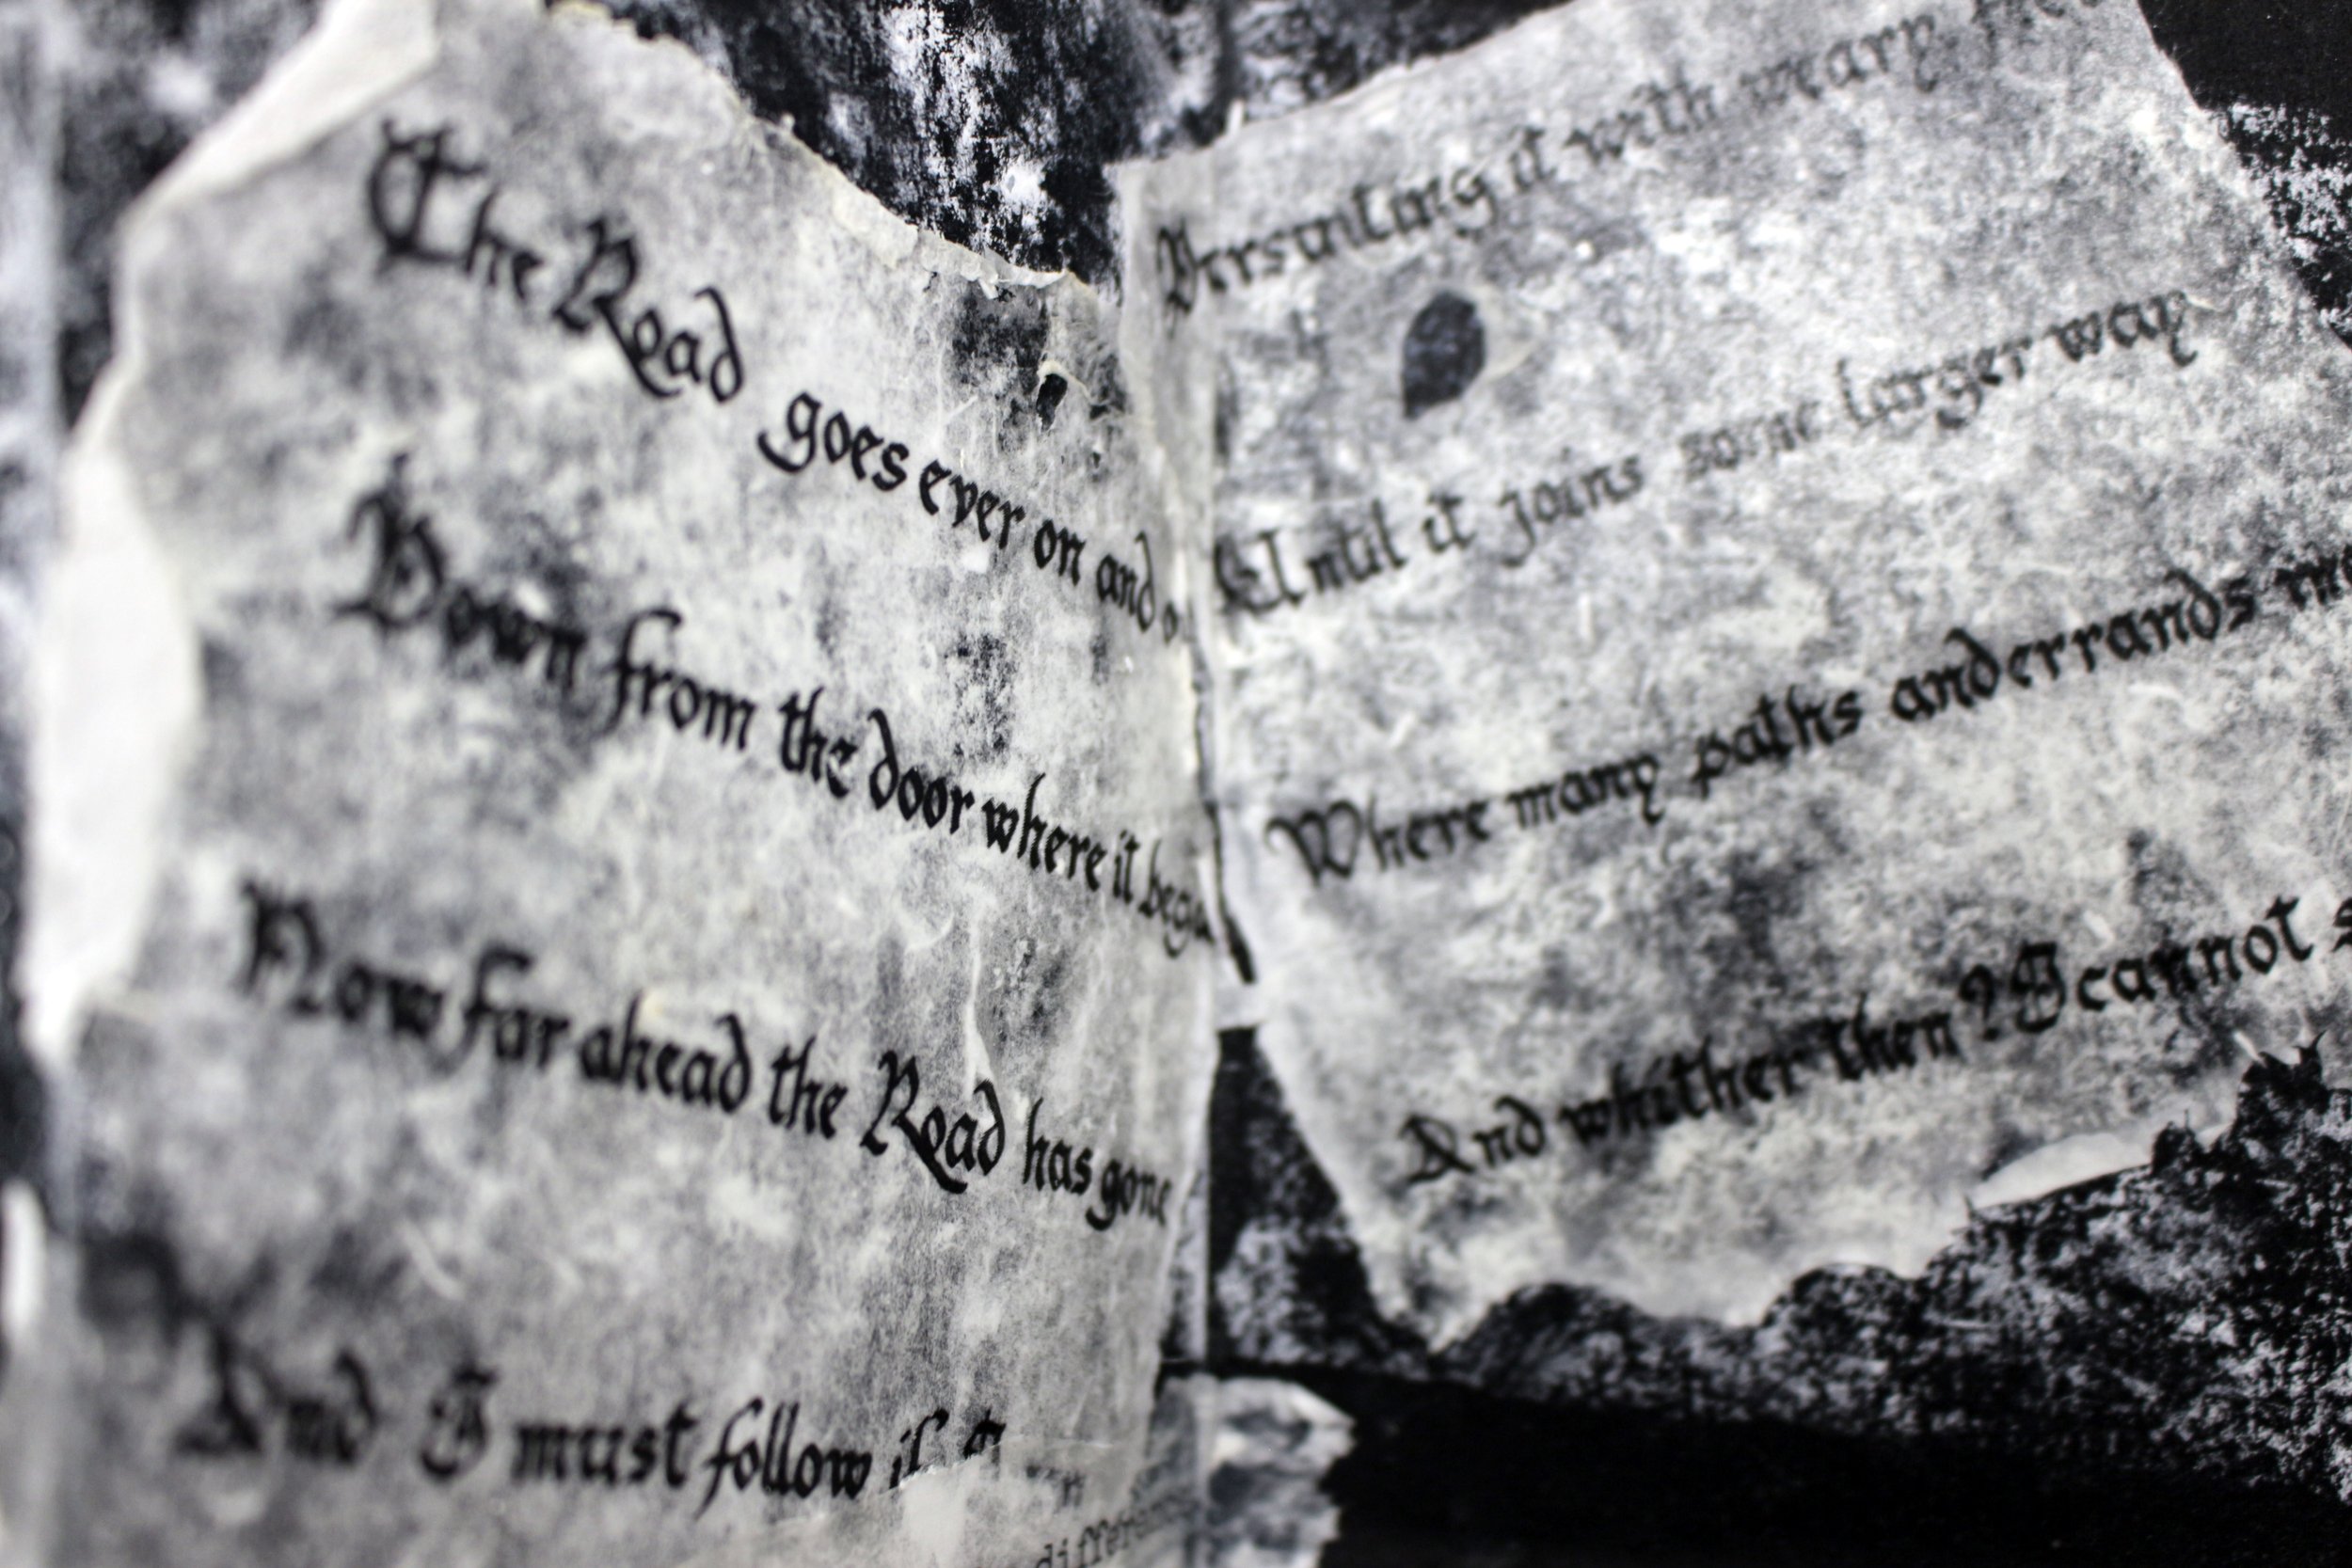 The Road goes ever on and o
Down from the door where it bega
Now far ahead the Road has gone
And I must follow if
differen
Persuiting it with weary
Until it joins some larger way
Where many paths and errands m
And whither then? I cannot s